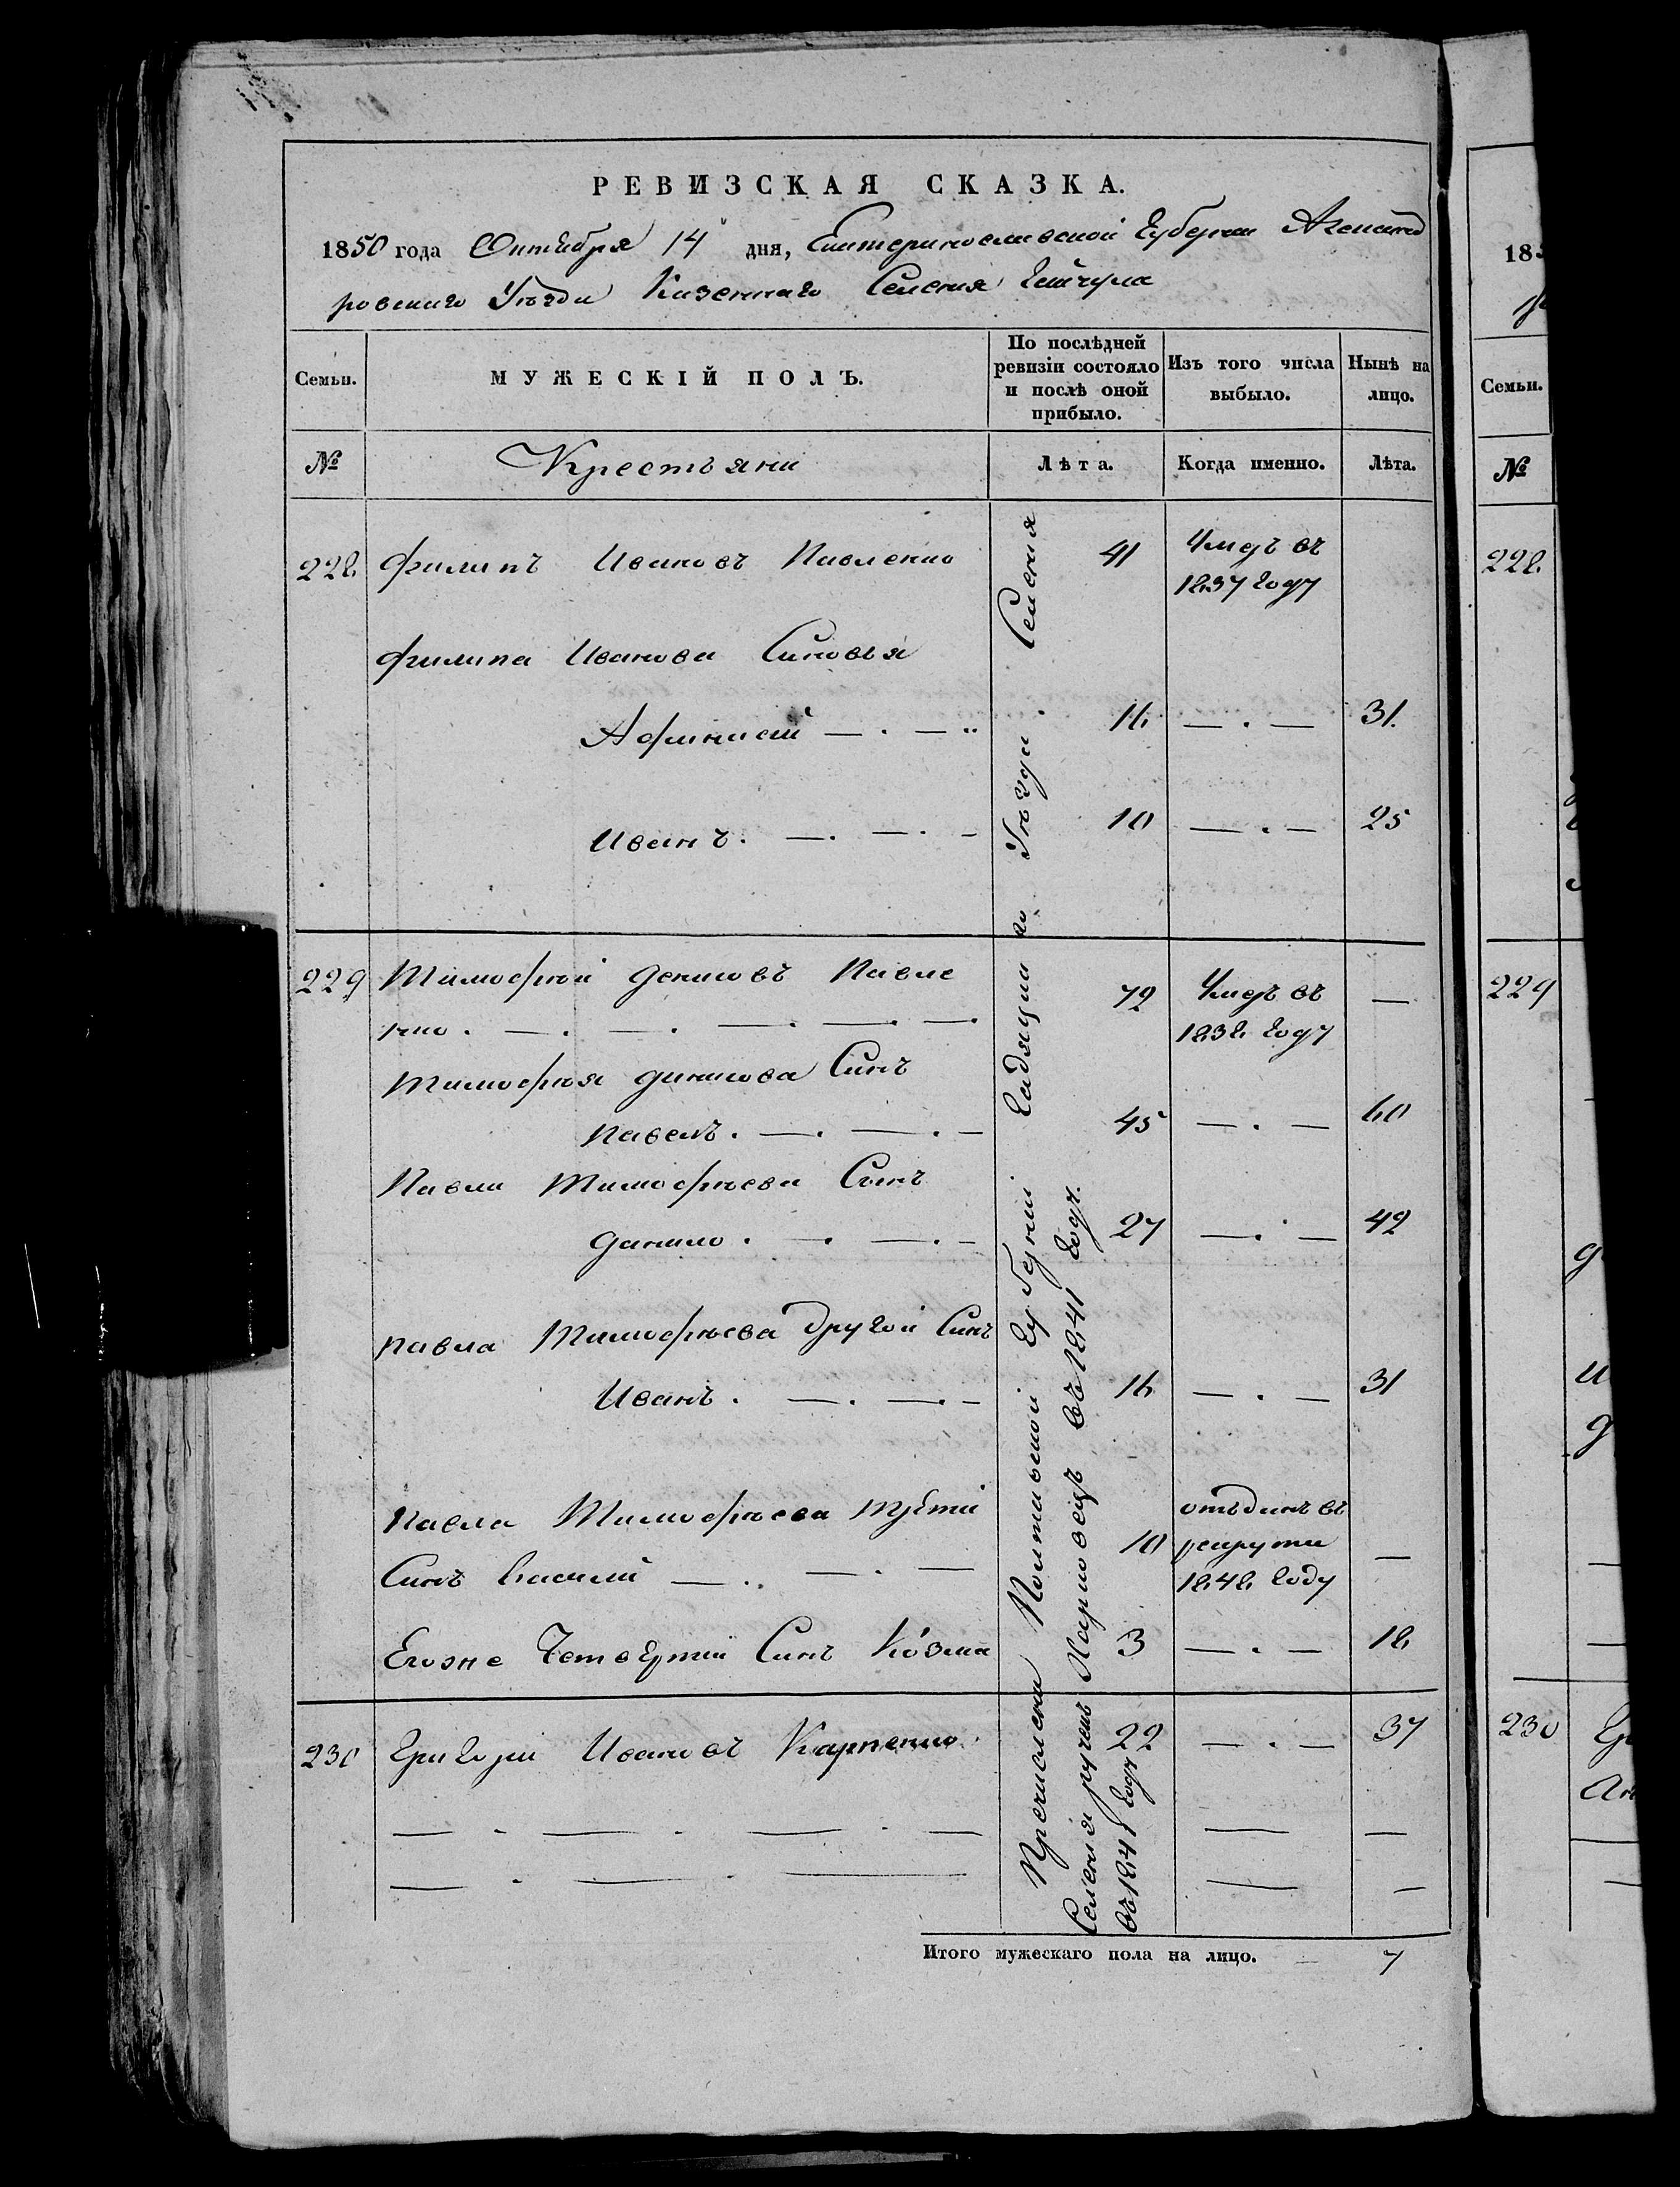 РЕВИЗСКАЯ СКАЗКА.
1850 года Октября 14 дня, Екатеринославской Губернии Александ
ровскаго Уѣзда Казеннаго Селенія Гайчула
Семьи.
МУЖЕСКІЙ ПОЛЪ.
По послѣдней ревизіи состояло и послѣ оной прибыло.
Изъ того числа выбыло.
Нынѣ на лицо.
№
Крестьяни
Лѣта.
Когда именно.
Лѣта.
228 Филипъ Ивановъ Павленко 41 Умеръ въ
1837 году
Филипа Иванова Синовья
Афанасій — . — 16 — . — 31.
Иванъ. — . — . — 10 — . — 25
229 Тимофѣй Денисовъ Павле 72 Умеръ въ —
нко . — . — . — . — . — 1838 году
Тимофѣя Динисова Синъ
Павелъ . — . — . — 45 — . — 60
Павла Тимофѣева Сынъ
Данило . — . — . — 27 — . — 42
Павла Тимофѣева Другой Синъ
Иванъ . — . — . — 16 — . — 31
Павла Тимофѣева Трѣтій отъданъ въ
10 рекруты —
Синъ Василій — . . — . — 1848 году
Егоже Четвертій Синъ Козма 3 — . — 18
230 Григорій Ивановъ Карпенко 22 — . — 37
Пречислени Полтавской Губерніи Гадяцкаго Уѣзда . Селенія
Селенія ручекъ въ 1841 году.
въ 1841 году
Итого мужескаго пола на лицо. 7
185
Семьи.
№
228.
229
230